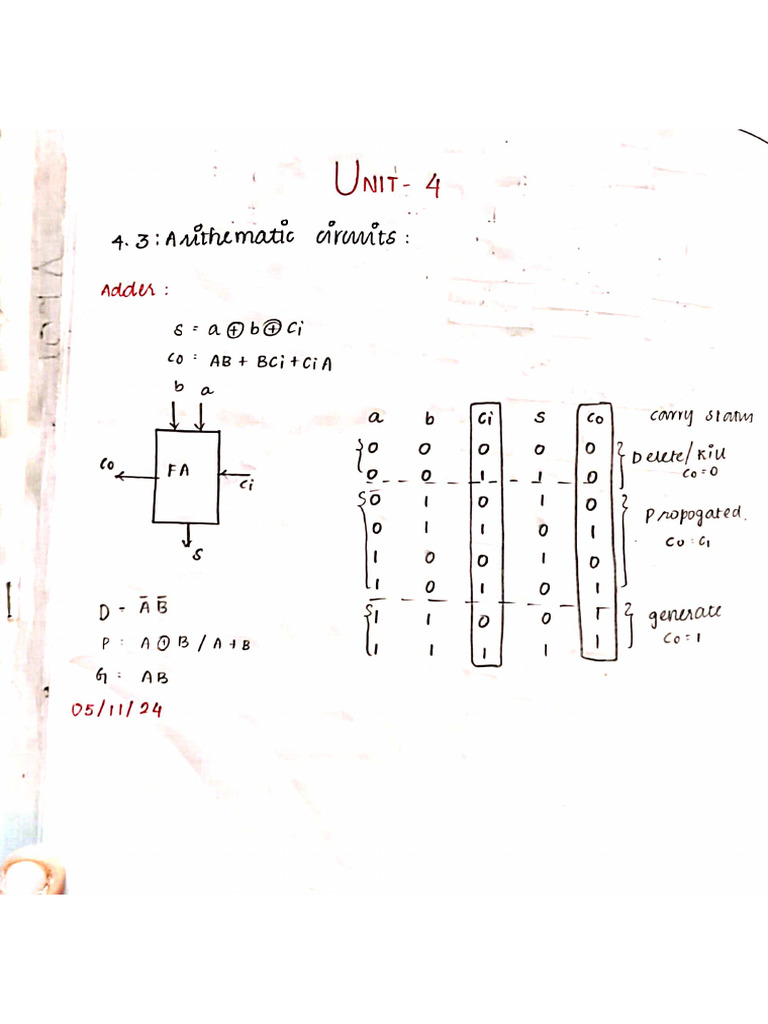 UNIT- 4
4.3: Arithematic circuits:
Adder:
S = a ⊕ b ⊕ Ci
Co = AB + BCi + CiA
b a
Co FA Ci
S
a b Ci S Co carry status
0 0 0 0 0 Delete/Kill
0 0 1 1 0 Co=0
0 1 0 1 0
0 1 1 0 1 Propogated.
1 0 0 1 0 Co=Ci
1 0 1 0 1
1 1 0 0 1 generate
1 1 1 1 1 Co=1
D = A̅ B̅
P: A ⊕ B / A+B
G: AB
05/11/24